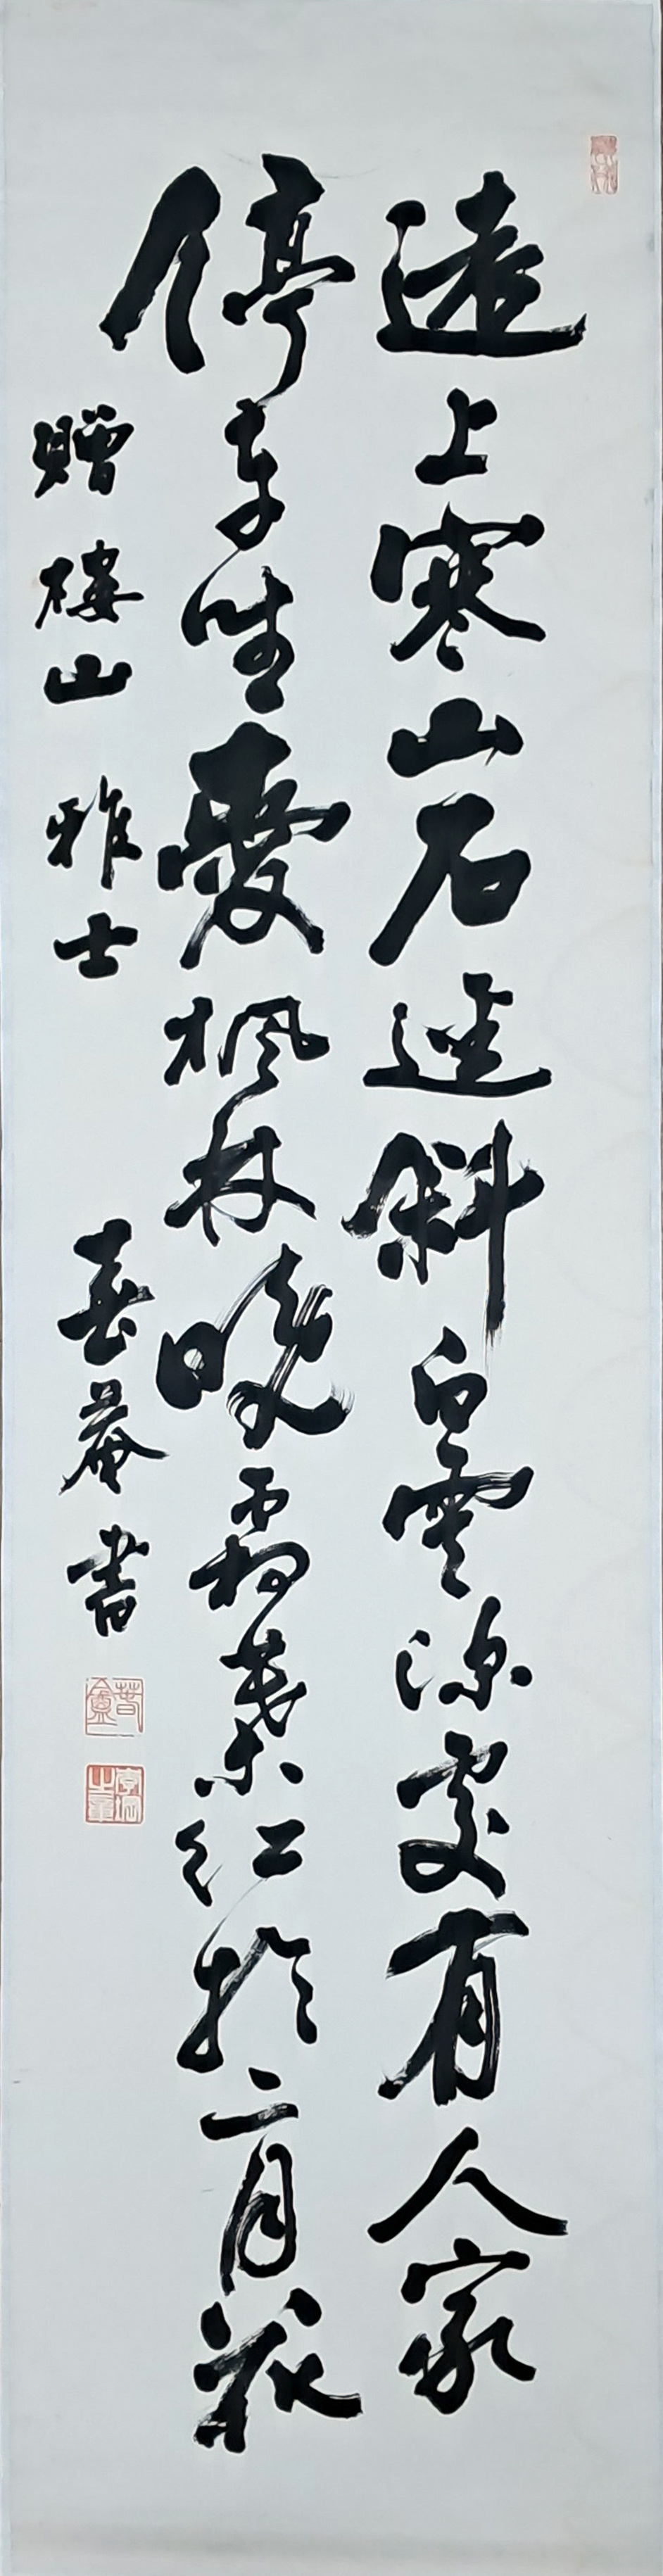 遠上寒山石逕斜白雲深處有人家
停車坐愛楓林晚霜葉紅於二月花
贈樓山雅士 春菴書